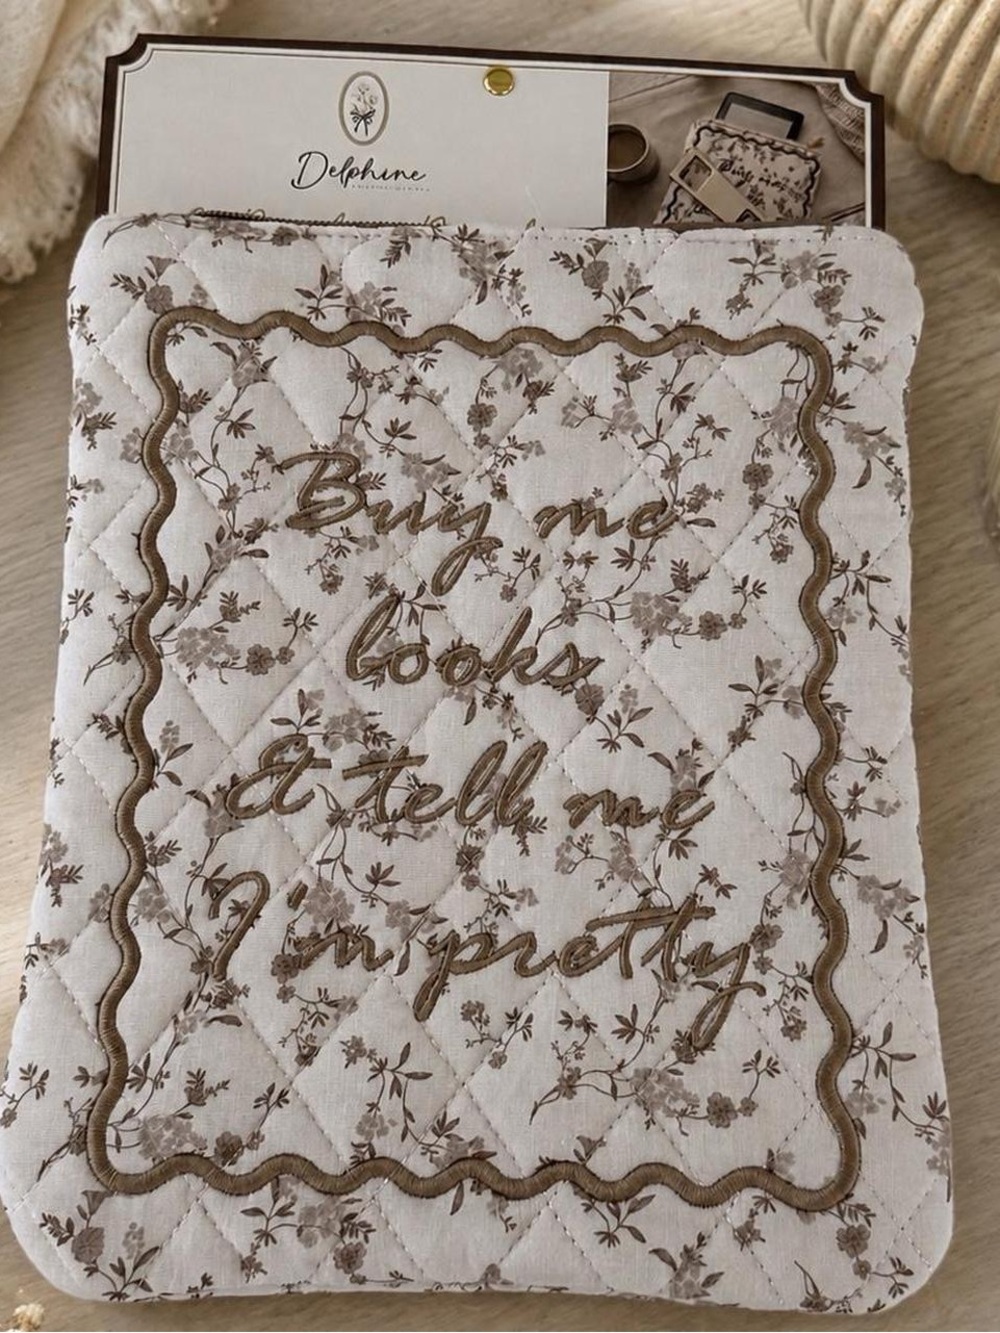 Delphine
Buy me
books
& tell me
I'm pretty